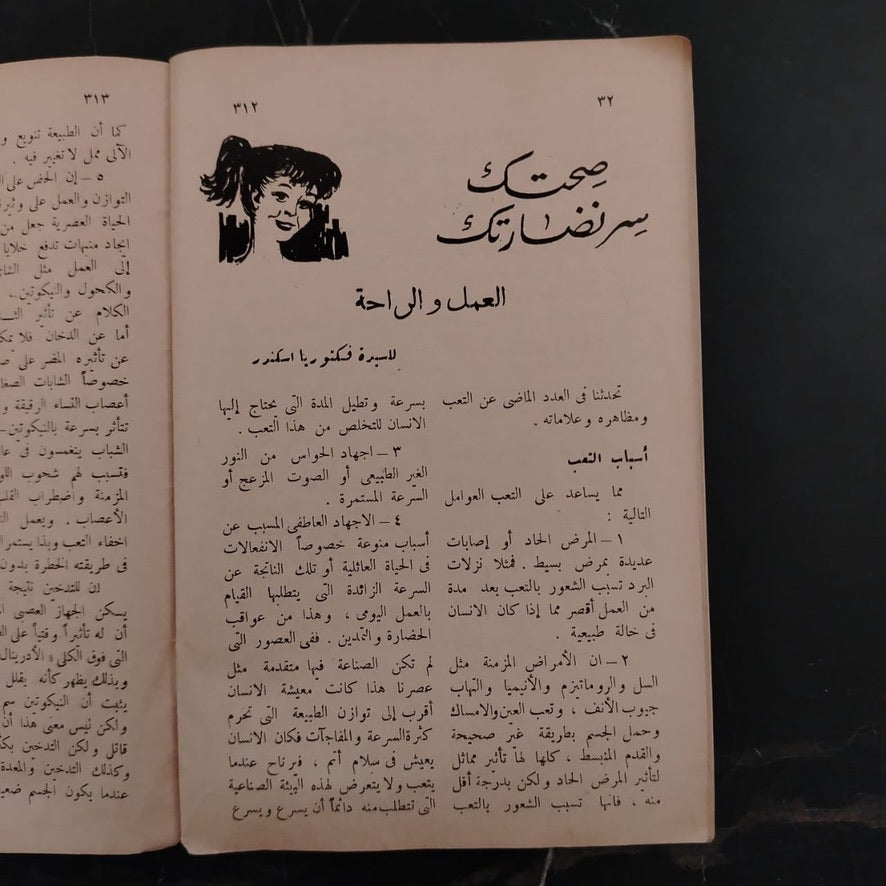 ٣٢
٣١٢
صحتك
سر نضارتك
العمل والراحة
للسيدة فكتوريا اسكندر
تحدثنا فى العدد الماضى عن التعب
ومظاهره وعلاماته .
أسباب التعب
مما يساعد على التعب العوامل
التالية :
١ – المرض الحاد أو إصابات
عديدة بمرض بسيط . فمثلا نزلات
البرد تسبب الشعور بالتعب بعد مدة
من العمل أقصر مما إذا كان الانسان
فى حالة طبيعية .
٢ – ان الأمراض المزمنة مثل
السل والروماتيزم والأنيميا والتهاب
جيوب الأنف ، وتعب العين والامساك
وحمل الجسم بطريقة غير صحيحة
والقدم المنبسط ، كلها لها تأثير مماثل
لتأثير المرض الحاد ولكن بدرجة أقل
منه ، فانها تسبب الشعور بالتعب
بسرعة وتطيل المدة التى يحتاج إليها
الانسان للتخلص من هذا التعب .
٣ – اجهاد الحواس من النور
الغير الطبيعى أو الصوت المزعج أو
السرعة المستمرة .
٤ – الاجهاد العاطفى المسبب عن
أسباب منوعة خصوصاً الانفعالات
فى الحياة العائلية أو تلك الناتجة عن
السرعة الزائدة التى يتطلبها القيام
بالعمل اليومى ، وهذا من عواقب
الحضارة والتمدين . ففى العصور التى
لم تكن الصناعة فيها متقدمة مثل
عصرنا هذا كانت معيشة الانسان
أقرب إلى توازن الطبيعة التى تحرم
كثرة السرعة والمفاجآت فكان الانسان
يعيش فى سلام أتم ، فيرتاح عندما
يتعب ولا يتعرض لهذه البيئة الصناعية
التى تتطلب منه دائماً أن يسرع ويسرع
٣١٣
كما أن الطبيعة تنويع
الآلى ممل لا تغيير فيه .
٥ – إن الحض على
التوازن والعمل على
الحياة العصرية جعل من
ايجاد منبهات تدفع خلايا
إلى العمل مثل
والكحول والنيكوتين .
الكلام عن تأثير
أما عن الدخان فلا
عن تأثيره المضر على
خصوصاً الشابات
أعصاب النساء الرقيقة
تتأثر بسرعة بالنيكوتين –
الشباب ينغمسون فى
فتسبب لهم شحوب
المزمنة واضطراب
الأعصاب . ويعمل
اخفاء التعب وبذا يستمر
فى طريقته الخطرة بدون
إن للتدخين نتيجة
يسكن الجهاز العصبى
أن له تأثيراً وقتياً على
التى فوق الكلى
وبذلك يظهر كأنه يقلل
يثبت أن النيكوتين سم
ولكن ليس معنى هذا أن
قاتل ولكن التدخين
وكذلك التدخين والمعدة
عندما يكون الجسم